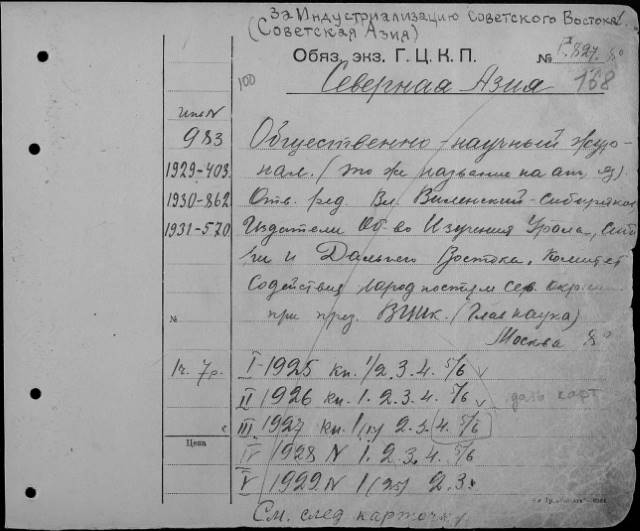 За Индустриализацию Советского Востока.
(Советская Азия)
Обяз. экз. Г. Ц. К. П. №
100 Северная Азия 168
Инв N
983 Общественно-научный жур-
1929-403. нал. (то же название на анг. яз).
1930-862. Отв. ред. Вл. Виленский-Сибиряков
1931-570. Издатели Об-во Изучения Урала, Сиби-
ри и Дальнего Востока, Комитет
Содействия народностям Сев. окраин
№ при през. ВЦИК. (Главнаука)
Москва 8°
1г. 7р. I-1925 кн. 1/2. 3. 4. 5/6
II 1926 кн. 1. 2. 3. 4. 5/6
карт
с III 1927 кн. 1 2. 3. (4. 5/6)
Цена
IV 1928 N 1. 2. 3. 4. 5/6
V 1929 N 1 (25) 2. 3
См. след карточку